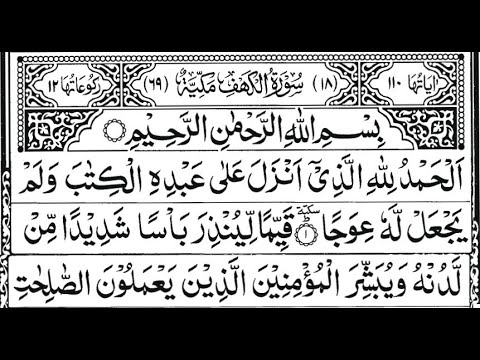 اٰیَاتُهَا ۱۱۰ (۱۸) سُوْرَةُ الْكَهْفِ مَكِّیَّةٌ (۶۹) رُكُوْعَاتُهَا ۱۲
بِسْمِ اللّٰهِ الرَّحْمٰنِ الرَّحِیْمِ
اَلْحَمْدُ لِلّٰهِ الَّذِیْۤ اَنْزَلَ عَلٰی عَبْدِهِ الْكِتٰبَ وَلَمْ
یَجْعَلْ لَّهٗ عِوَجًا ۱ سكتة قَیِّمًا لِّیُنْذِرَ بَاْسًا شَدِیْدًا مِّنْ
لَّدُنْهُ وَیُبَشِّرَ الْمُؤْمِنِیْنَ الَّذِیْنَ یَعْمَلُوْنَ الصّٰلِحٰتِ